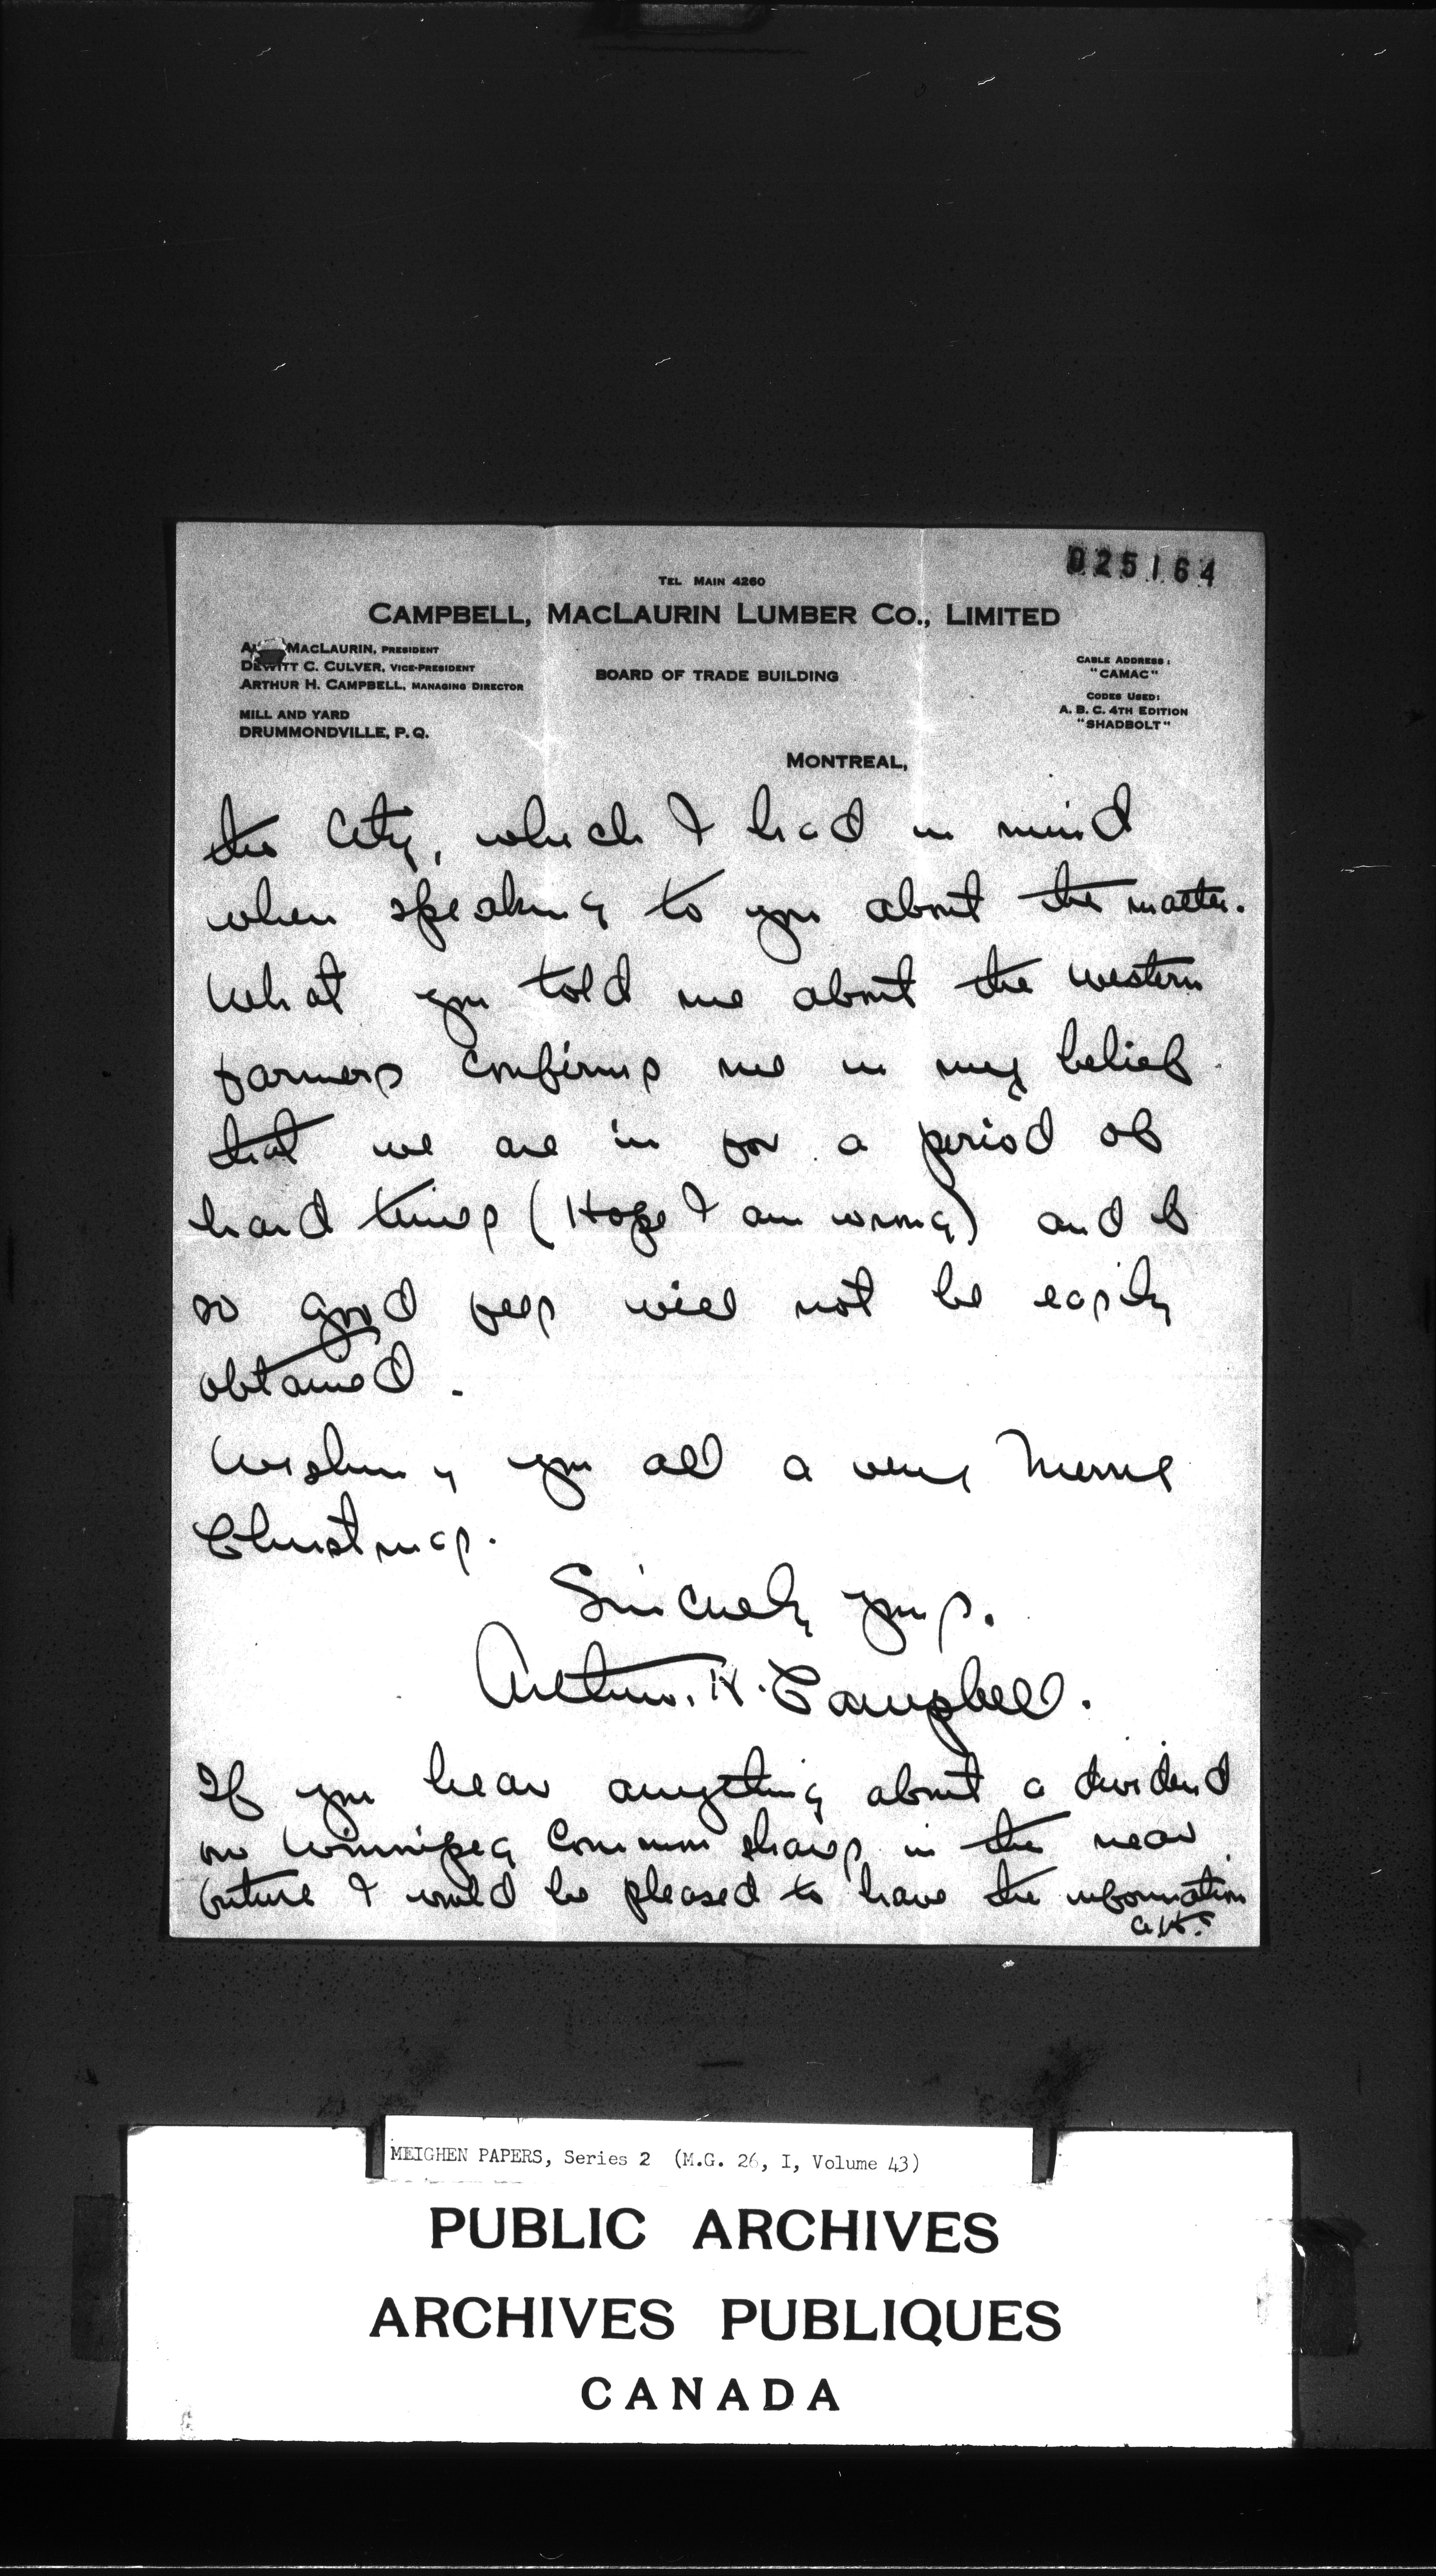 025164
TEL MAIN 4260
CAMPBELL, MACLAURIN LUMBER CO., LIMITED
MACLAURIN, PRESIDENT
DEWITT C. CULVER, VICE-PRESIDENT
ARTHUR H. CAMPBELL, MANAGING DIRECTOR
BOARD OF TRADE BUILDING
CABLE ADDRESS:
"CAMAC"
CODES USED:
A. B. C. 4TH EDITION
"SHADBOLT"
MILL AND YARD
DRUMMONDVILLE, P.Q.
MONTREAL,
the City, which I had in mind
when speaking to you about the matter.
What you told me about the western
farmers confirms me in my belief
that we are in for a period of
hard times (Hope I am wrong) and if
so good fees will not be easily
obtained.
Wishing you all a very Merrie
Christmas.
Sincerely yours.
Arthur. H. Campbell.
If you hear anything about a dividend
on Winnipeg Common shares in the near
future I would be pleased to have the information
A.H.C
MEIGHEN PAPERS, Series 2 (M.G. 26, I, Volume 43)
PUBLIC ARCHIVES
ARCHIVES PUBLIQUES
CANADA